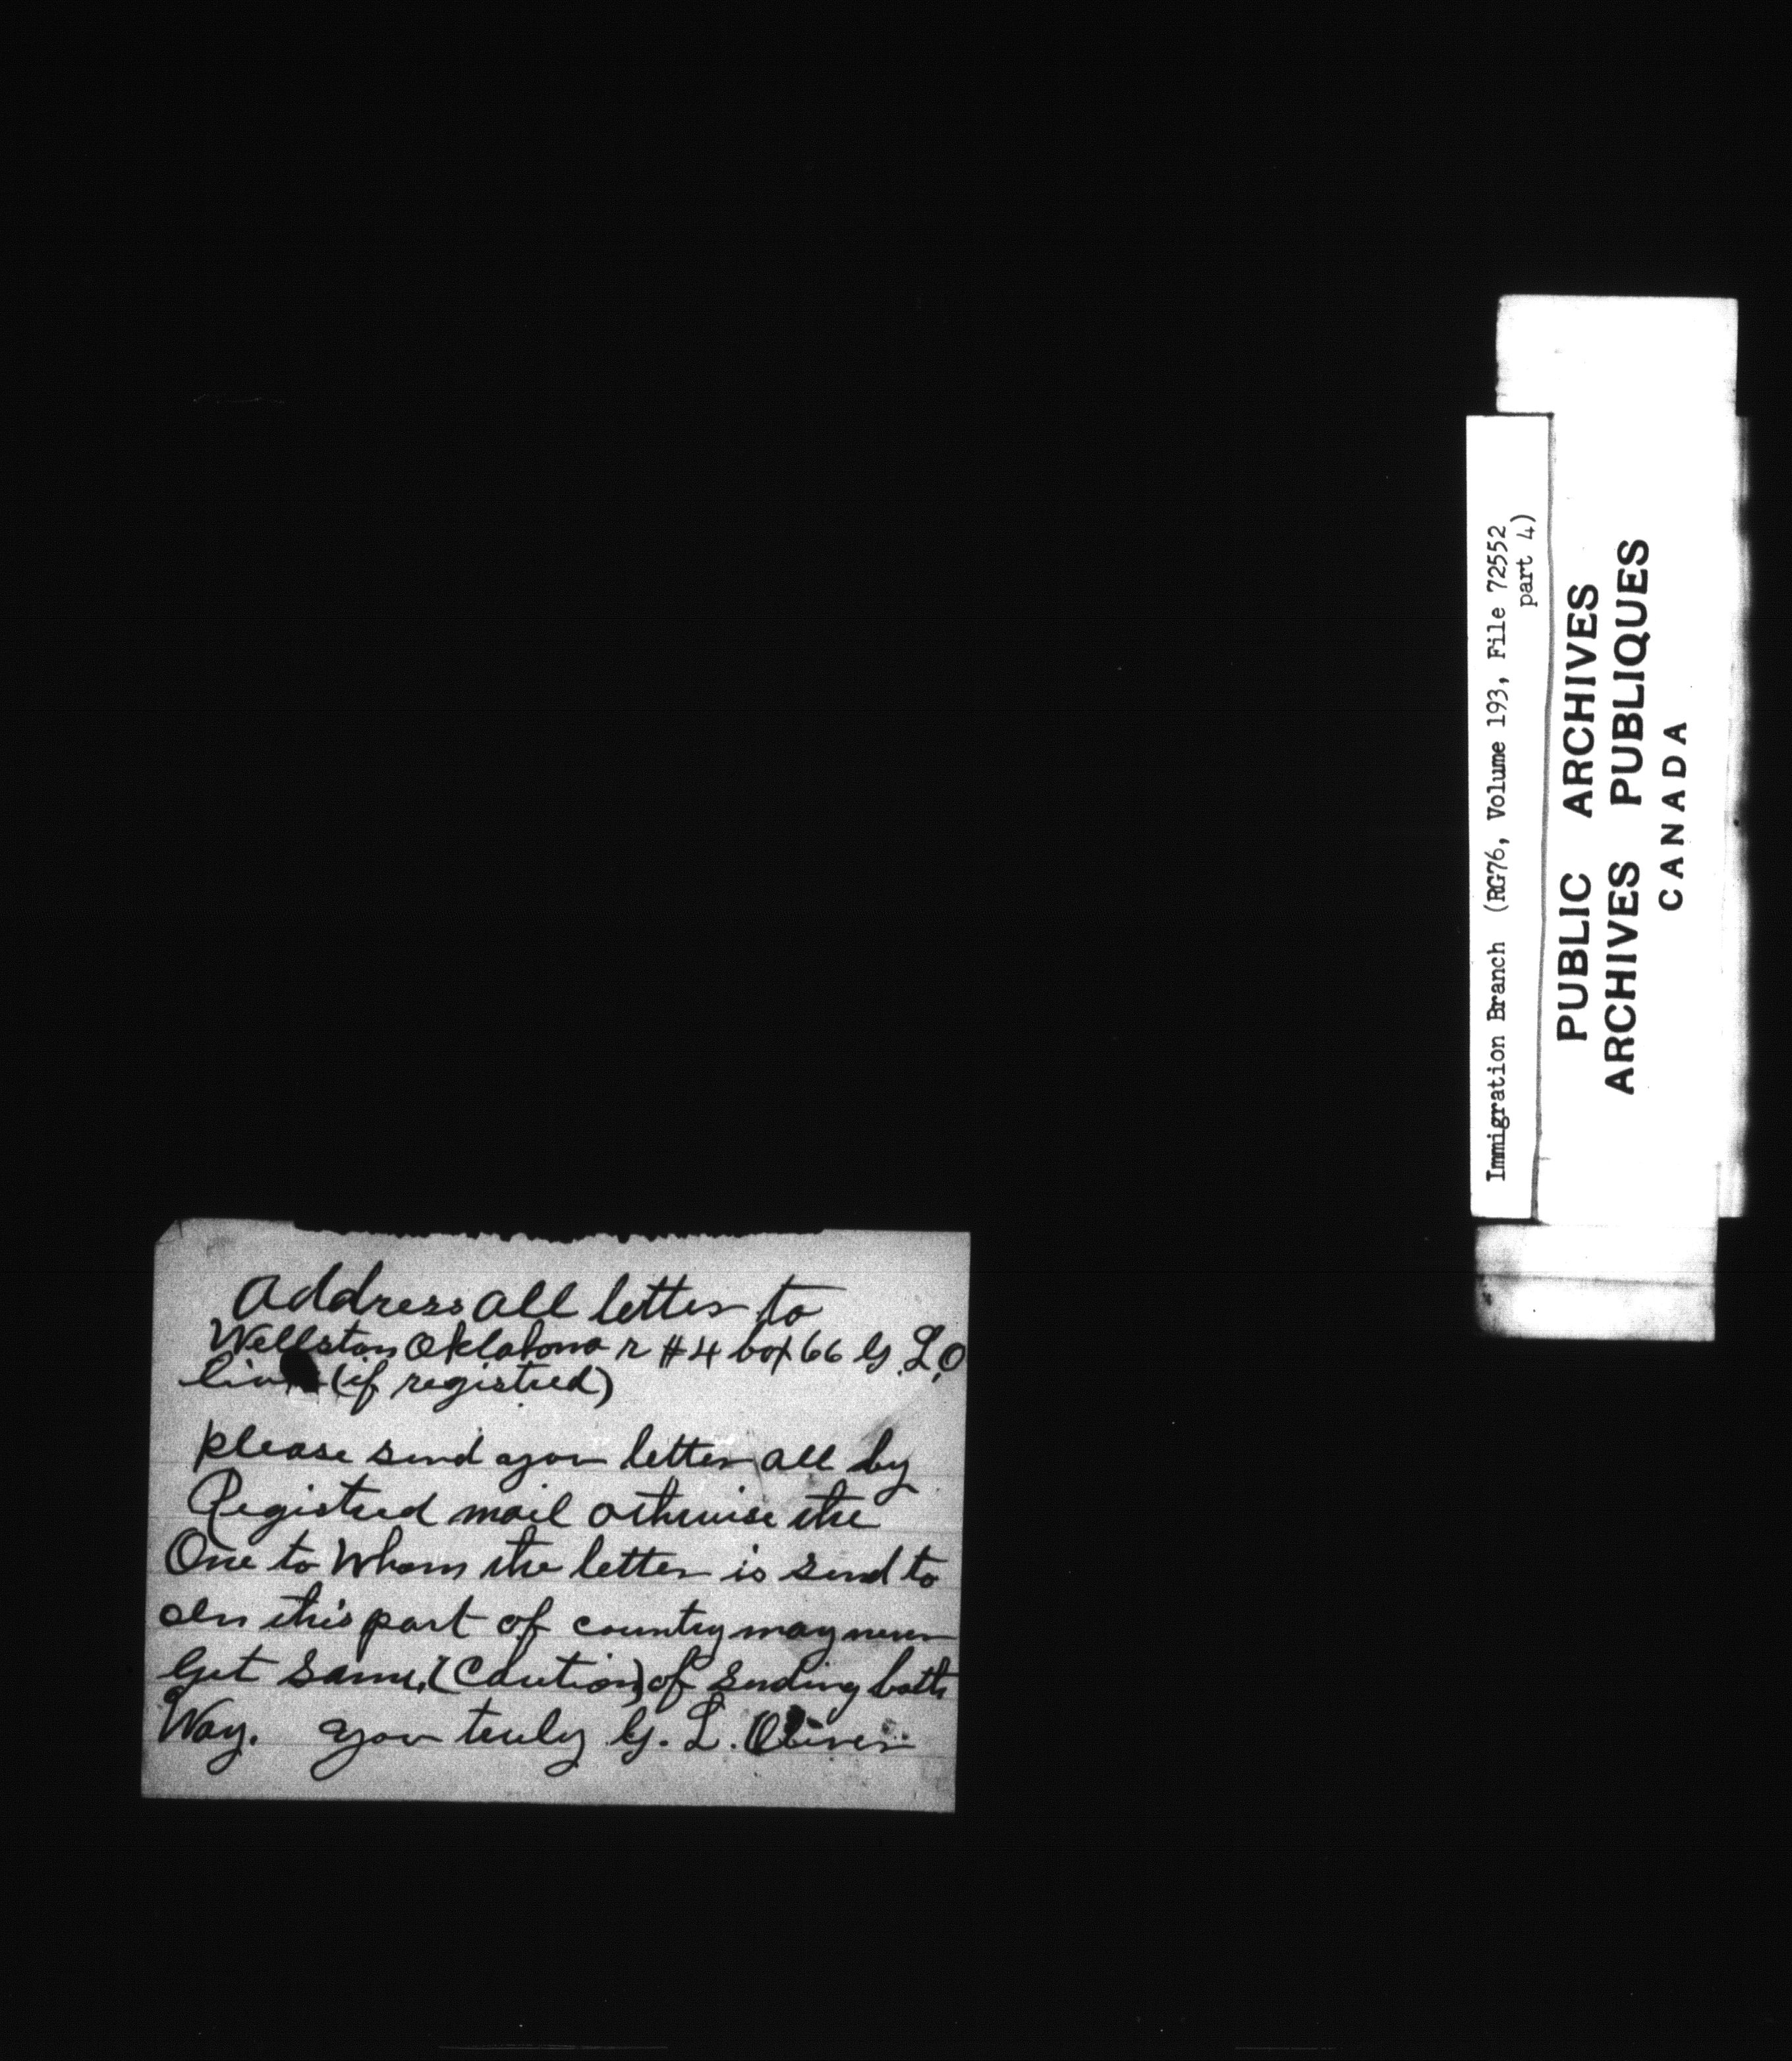 Address all letter to
Wellston Oklahoma r #4 box 66 G. L. O
liver (if registred)
please send your letter all by
Registred mail otherwise the
One to Whom the letter is send to
In this part of country may never
Get same, (Caution) of sending both
Way. your truly G. L. Oliver
Immigration Branch (RG76, Volume 193, File 72552
part 4)
PUBLIC ARCHIVES
ARCHIVES PUBLIQUES
CANADA